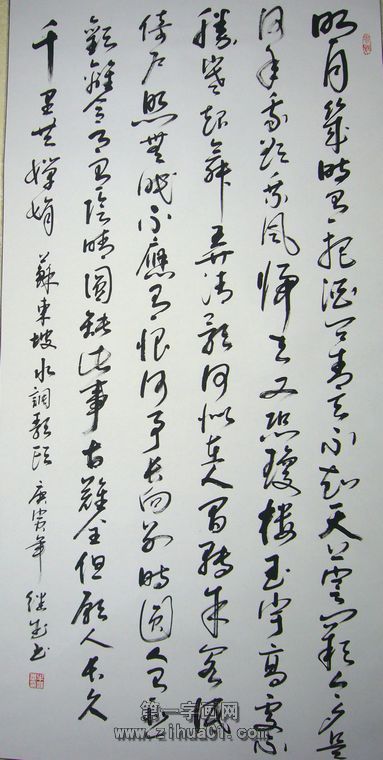 明月幾時有把酒問青天不知天上宮闕今夕是
何年我欲乘風歸去又恐瓊樓玉宇高處不
勝寒起舞弄清影何似在人間轉朱閣低
倚戶照無眠不應有恨何事長向別時圓人有悲
歡離合月有陰晴圓缺此事古難全但願人長久
千里共嬋娟 蘇東坡水調歌頭 庚寅年 書
第一字画网
www.zihua01.com